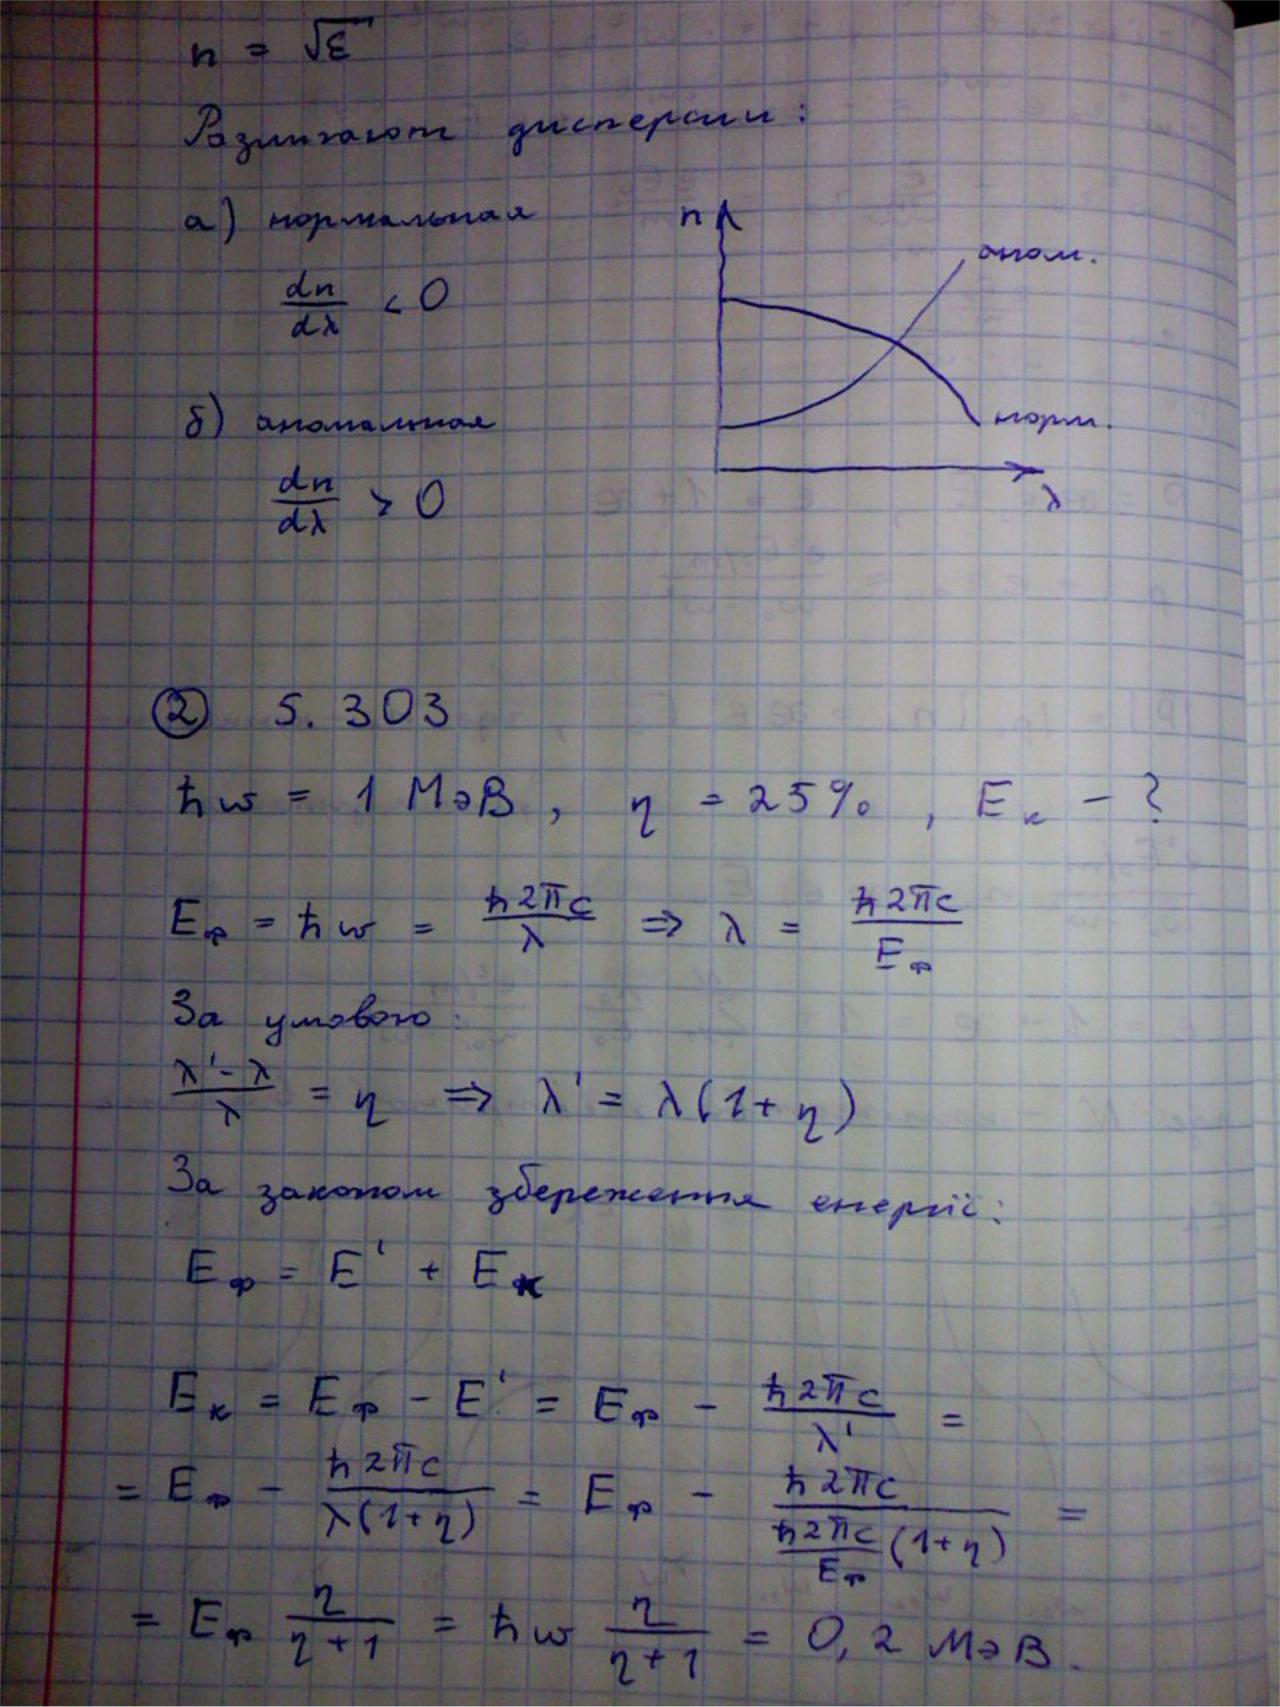 n = √ε
Различают дисперсии:
а) нормальная
dn/dλ < 0
n
аном.
норм.
λ
б) аномальная
dn/dλ > 0
② 5.303
ħw = 1 МэВ, η = 25%, Eк - ?
Eф = ħw = ħ2πc/λ ⇒ λ = ħ2πc/Eф
За умовою:
λ'-λ/λ = η ⇒ λ' = λ(1+η)
За законом збереження енергії:
Eф = E' + Eк
Eк = Eф - E' = Eф - ħ2πc/λ' =
= Eф - ħ2πc/λ(1+η) = Eф - ħ2πc/(ħ2πc/Eф (1+η)) =
= Eф η/η+1 = ħw η/η+1 = 0,2 МэВ.